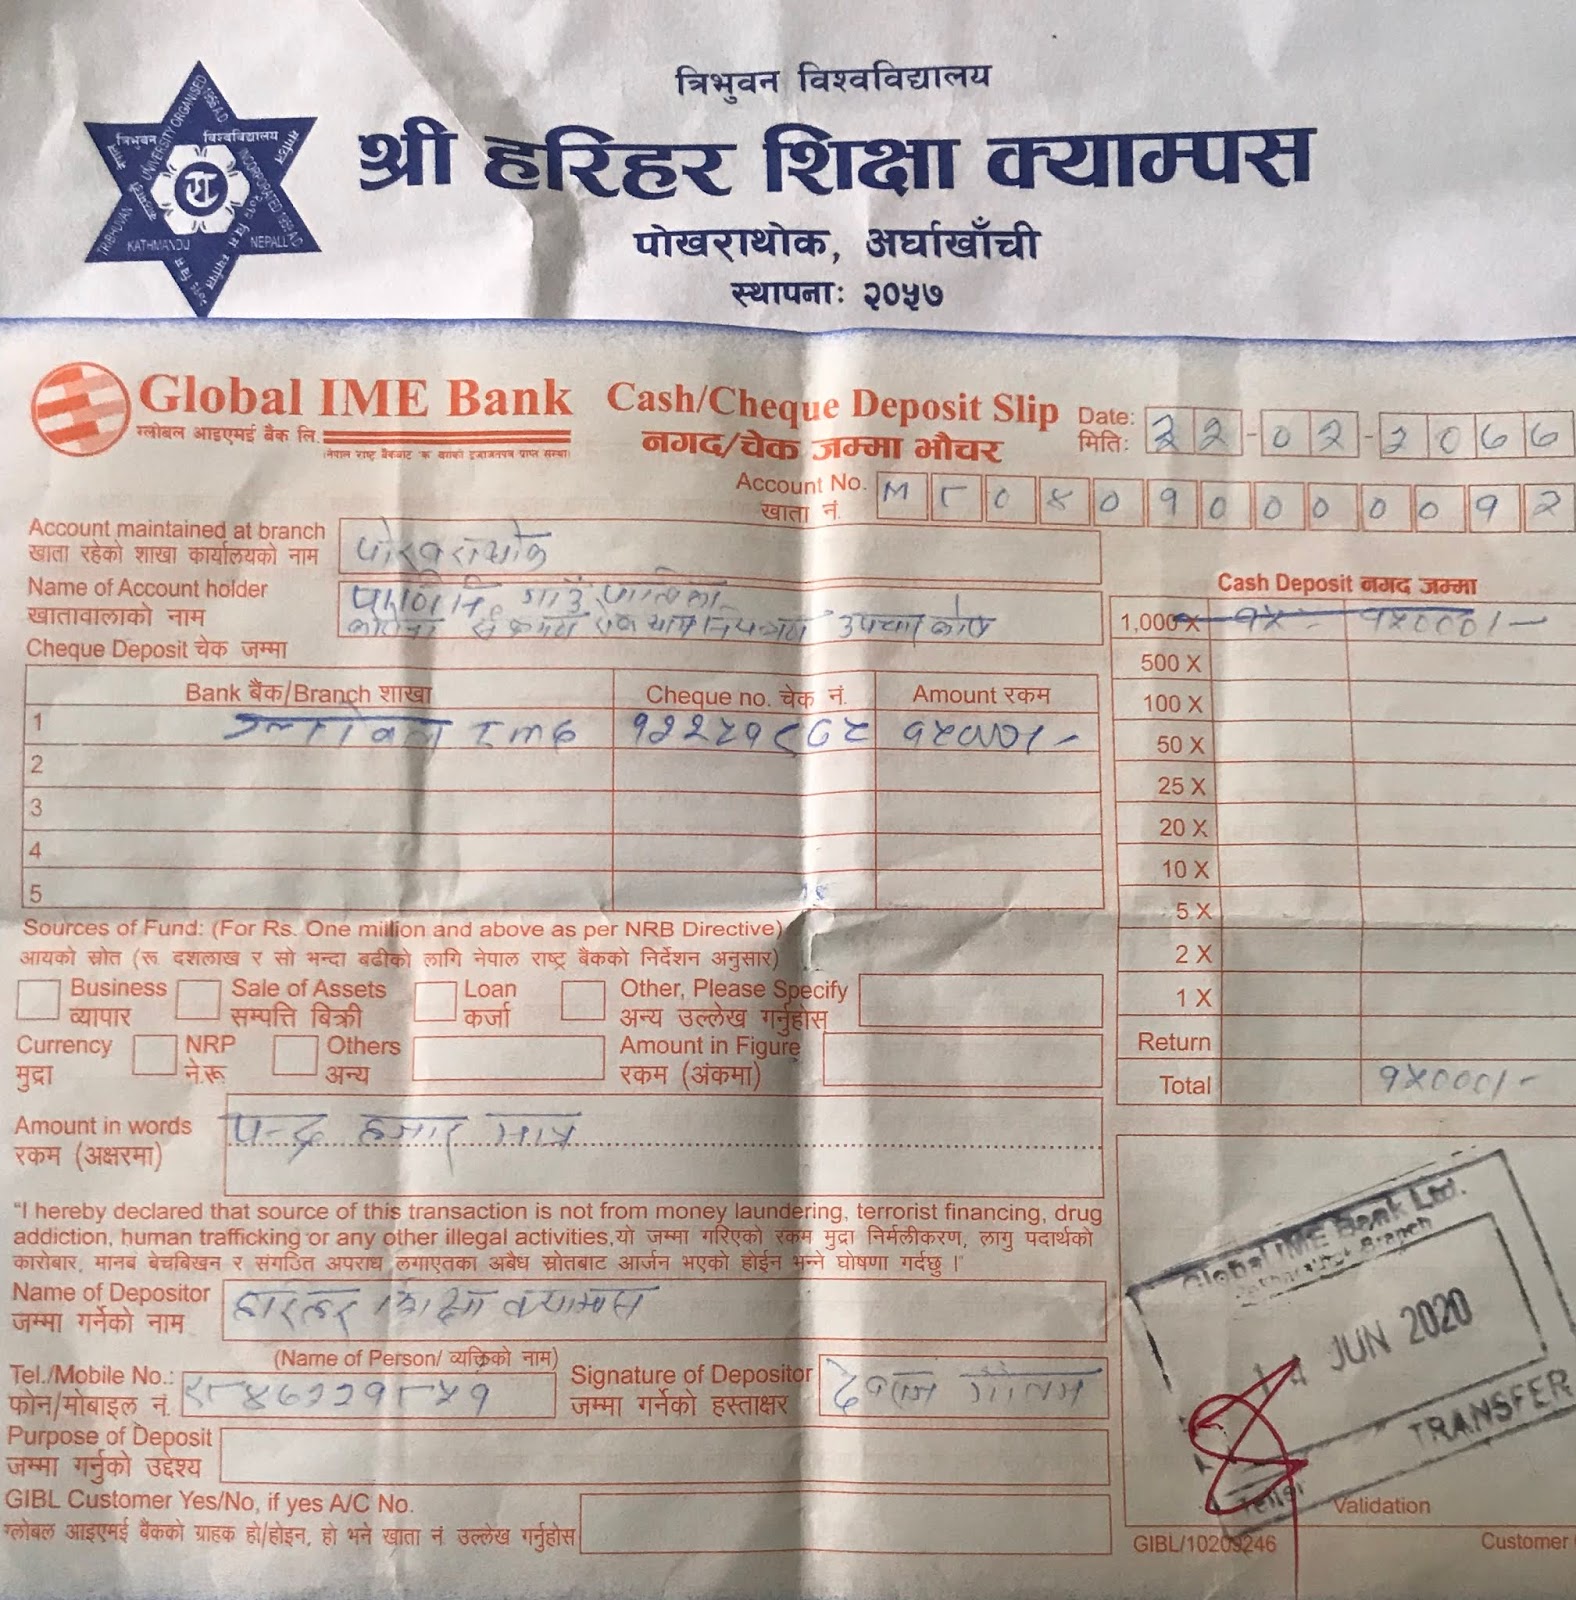 त्रिभुवन विश्वविद्यालय
श्री हरिहर शिक्षा क्याम्पस
पोखराथोक, अर्घाखाँची
स्थापनाः २०५७
त्रिभुवन विश्वविद्यालय
TRIBHUVAN UNIVERSITY ORGANISED 1956 A.D.
INCORPORATED 1959 A.D.
KATHMANDU NEPAL
Global IME Bank
ग्लोबल आइएमई बैंक लि.
Cash/Cheque Deposit Slip
नगद/चेक जम्मा भौचर
Date: २२-०२-२०७७
मितिः
Account No.
खाता नं.
Account maintained at branch पोखराथोक
खाता रहेको शाखा कार्यालयको नाम
Name of Account holder पाणिनि गाउँपालिका
खातावालाको नाम कोरोना संक्रमण रोकथाम नियन्त्रण उपचार कोष
Cheque Deposit चेक जम्मा
Bank बैंक/Branch शाखा Cheque no. चेक नं. Amount रकम
1 १५०००/-
2
3
4
5
Cash Deposit नगद जम्मा
1,000 X १५ १५०००/-
500 X
100 X
50 X
25 X
20 X
10 X
5 X
2 X
1 X
Return
Total १५०००/-
Sources of Fund: (For Rs. One million and above as per NRB Directive)
आयको स्रोत (रू दशलाख र सो भन्दा बढीको लागि नेपाल राष्ट्र बैंकको निर्देशन अनुसार)
Business Sale of Assets Loan Other, Please Specify
व्यापार सम्पत्ति बिक्री कर्जा अन्य उल्लेख गर्नुहोस
Currency NRP Others Amount in Figure
मुद्रा ने.रू अन्य रकम (अंकमा)
Amount in words पन्ध्र हजार मात्र
रकम (अक्षरमा)
"I hereby declared that source of this transaction is not from money laundering, terrorist financing, drug
addiction, human trafficking or any other illegal activities,यो जम्मा गरिएको रकम मुद्रा निर्मलीकरण, लागु पदार्थको
कारोबार, मानब बेचबिखन र संगठित अपराध लगाएतका अबैध स्रोतबाट आर्जन भएको होईन भन्ने घोषणा गर्दछु ।"
Name of Depositor हरिहर शिक्षा क्याम्पस
जम्मा गर्नेको नाम
(Name of Person/ व्यक्तिको नाम)
Tel./Mobile No.:
फोन/मोबाइल नं.
Signature of Depositor देवराज गौतम
जम्मा गर्नेको हस्ताक्षर
Purpose of Deposit
जम्मा गर्नुको उद्देश्य
GIBL Customer Yes/No, if yes A/C No.
ग्लोबल आइएमई बैंकको ग्राहक हो/होइन, हो भने खाता नं उल्लेख गर्नुहोस
Global IME Bank Ltd.
Branch
JUN 2020
TRANSFER
Teller
Validation
Customer